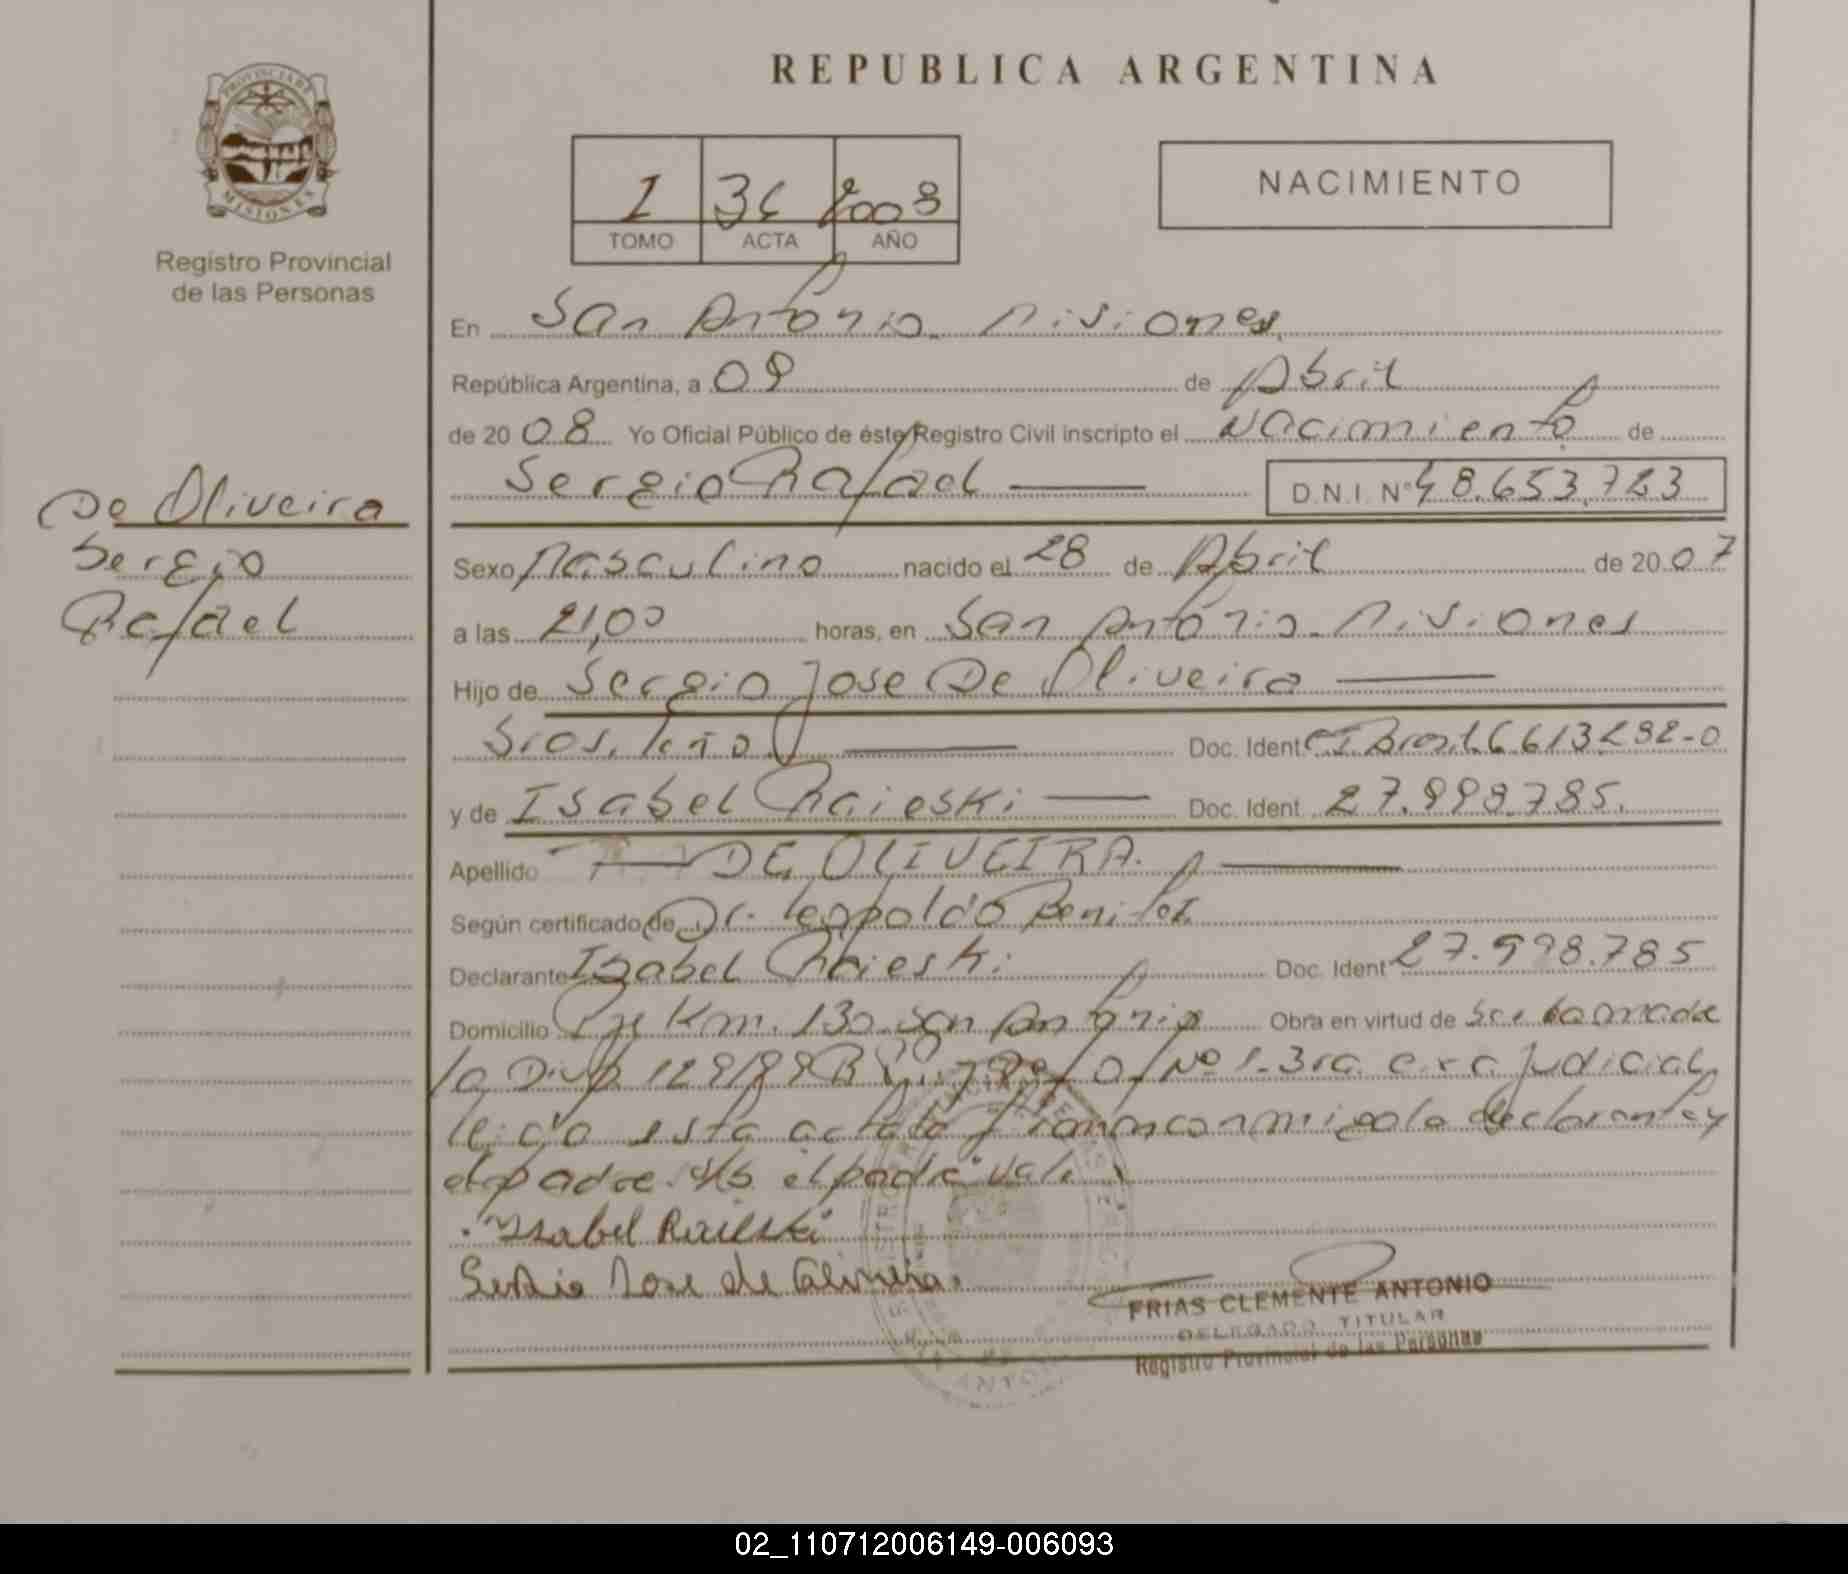 REPUBLICA ARGENTINA
PROVINCIA DE
MISIONES
Registro Provincial
de las Personas
I 36 2008
TOMO ACTA AÑO
NACIMIENTO
De Oliveira
Sergio
Rafael
En San Antonio Misiones,
República Argentina, a 09 de Abril
de 2008 Yo Oficial Público de éste Registro Civil inscripto el Nacimiento de
Sergio Rafael D.N.I. Nº 48.653.783
Sexo Masculino nacido el 28 de Abril de 2007
a las 21,00 horas, en San Antonio Misiones
Hijo de Sergio Jose De Oliveira
Brasileño Doc. Ident. CI Brasil 6613292-0
y de Isabel Raieski Doc. Ident. 27.998.785.
Apellido DE OLIVEIRA.
Según certificado de Dr. Leopoldo Benitez
Declarante Isabel Raieski Doc. Ident 27.998.785
Domicilio Pje Km. 130 San Antonio Obra en virtud de
la Disp. 129/99 Nº 1-3ra judicial
leida esta acta la firman conmigo la declarante y
el padre. el padre vale
Isabel Raieski
Sergio Jose de Oliveira
FRIAS CLEMENTE ANTONIO
DELEGADO TITULAR
Registro Provincial de las Personas
02_110712006149-006093